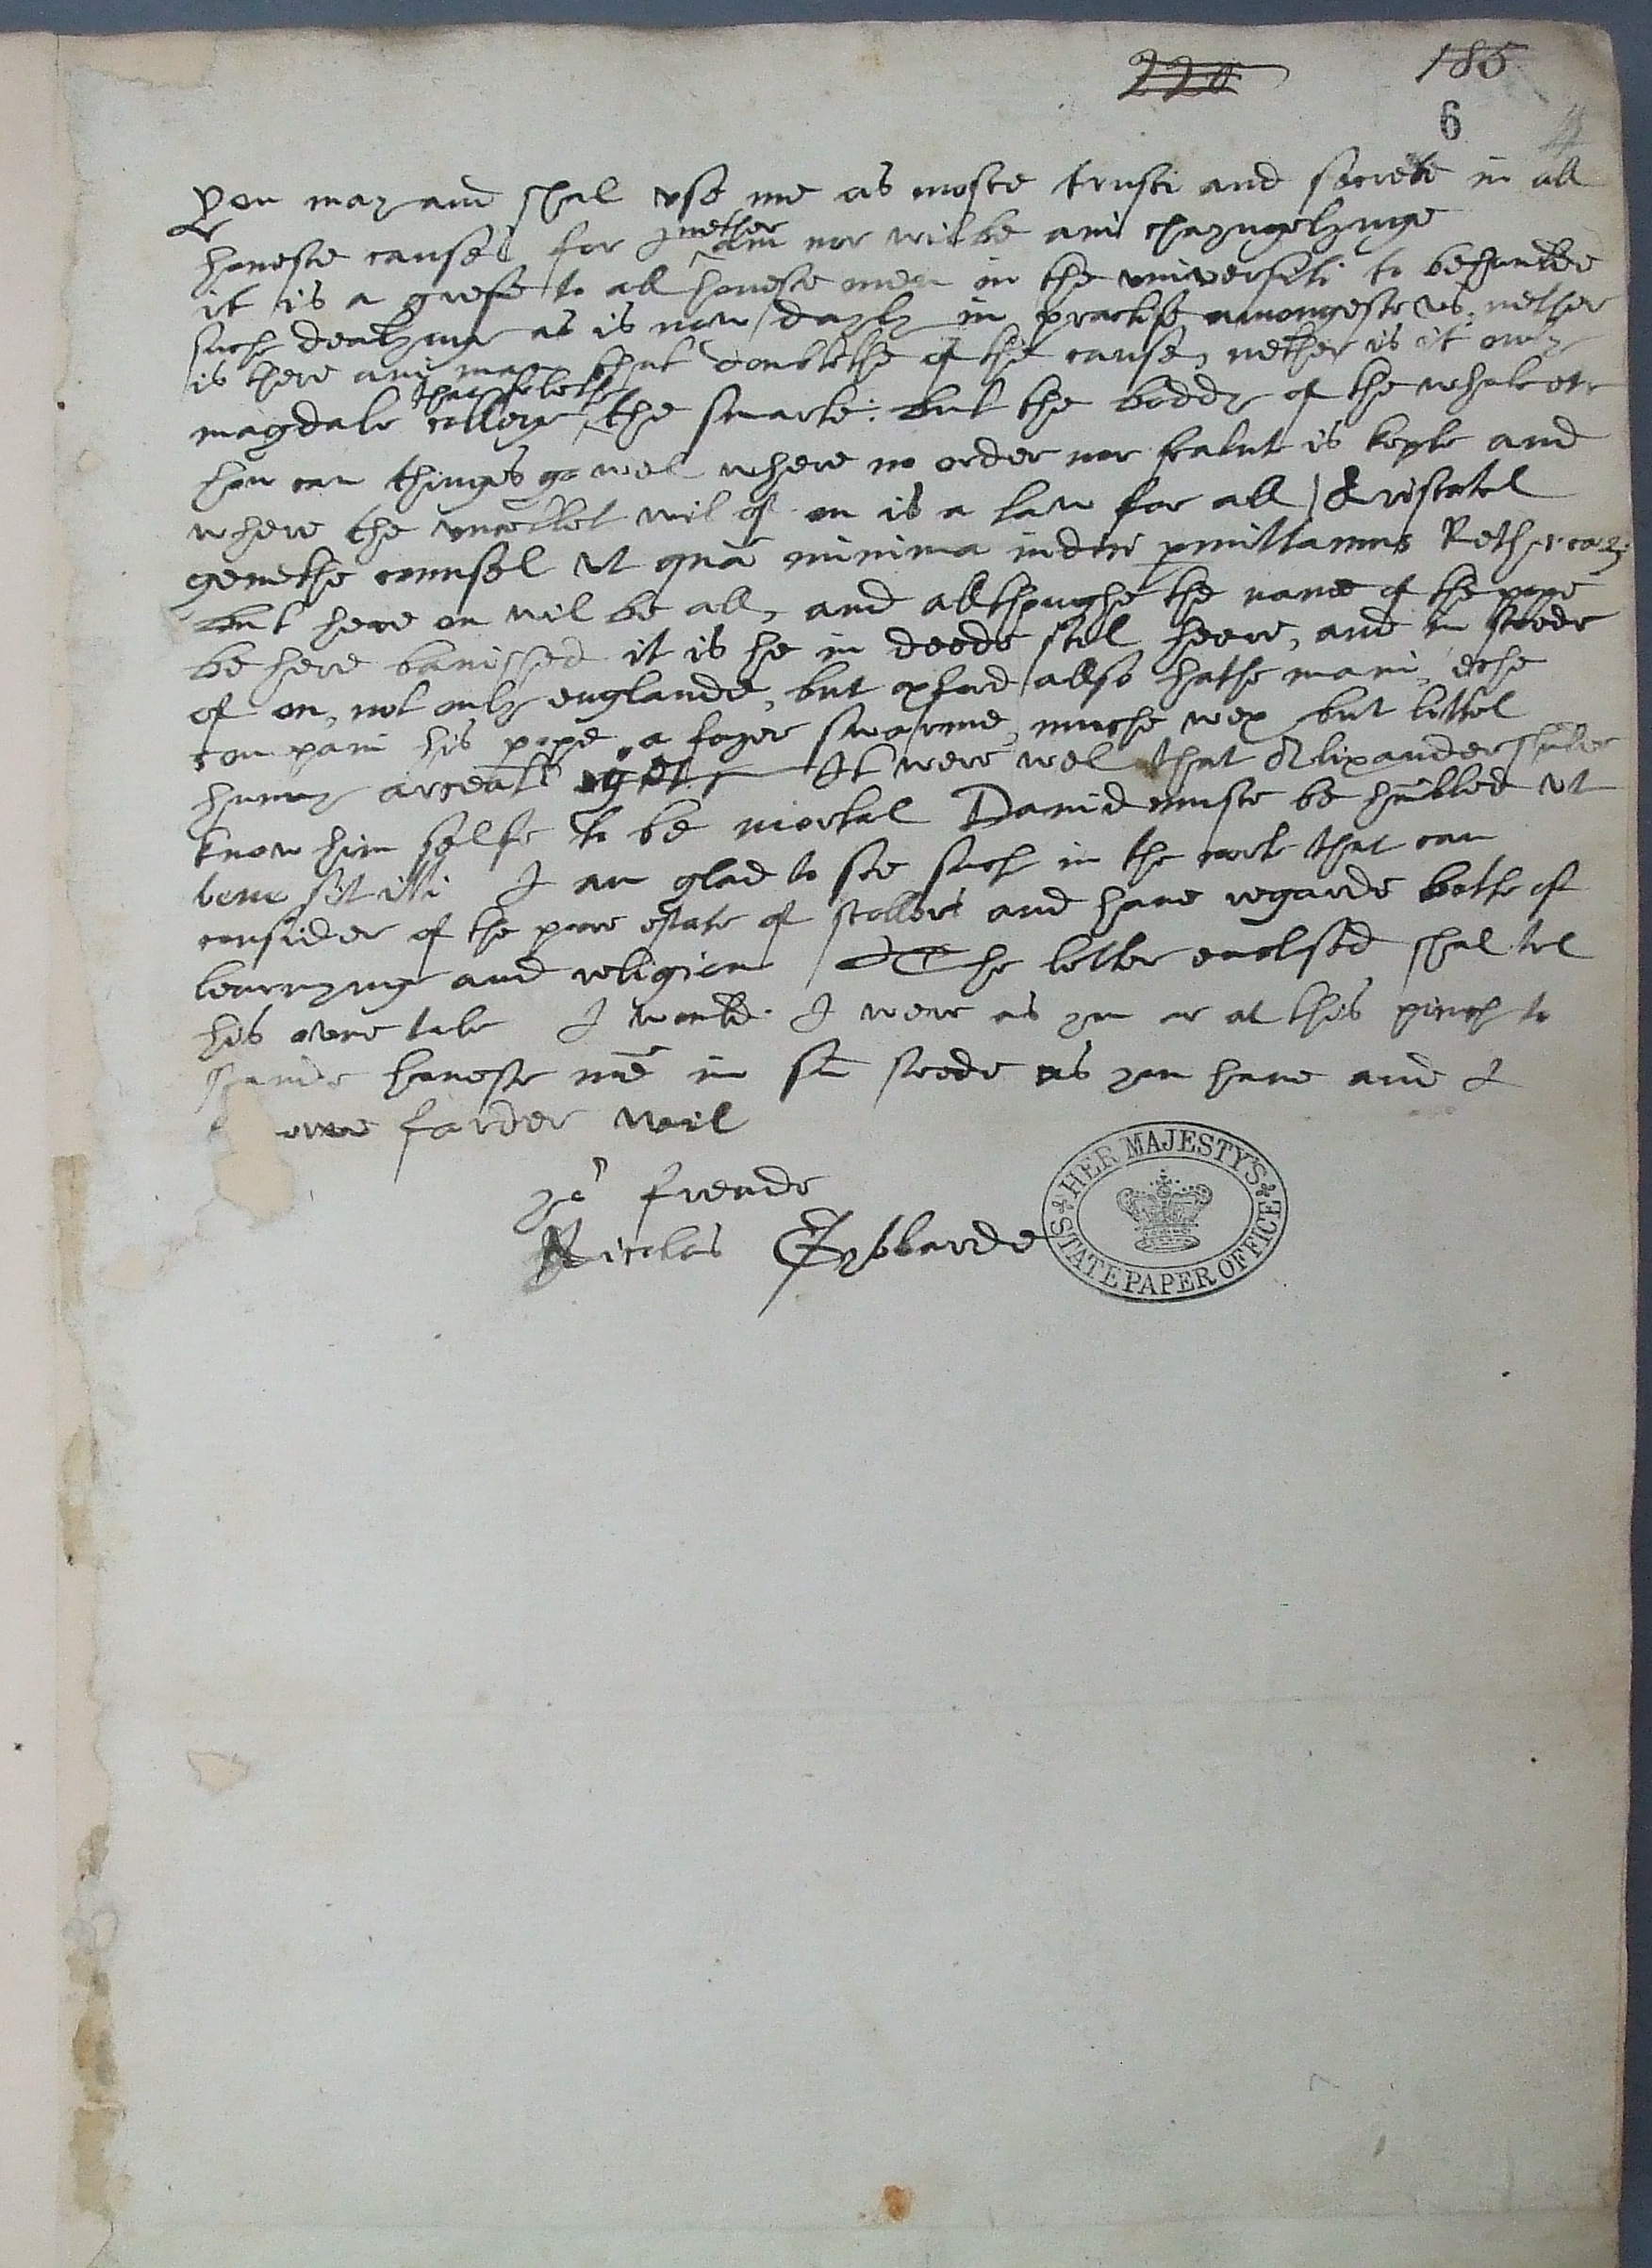 220 185
6
You may and shal use me as moste trusti and secrete in all
honeste causes for I nether am nor wil be ani chayngelynge
it is a grefe to all honeste men in the universiti to behoulde
suche dealynge as is now dayly in practise amongeste us. nether
is there ani man that doubtethe of the cause, nether is it only
magdale college that felethe the smarte: but the boddy of the whole
how can things go wel where no order nor statut is kepte and
where the wil of on is a law for all / Aristotel
gevethe counsel ut quã minima iudici pmittamus Rethor
but here on wil be all, and allthoughe the name of the pope
be here banisshed it is he in deede stil heere, and in steede
of on, not only englande, but oxford allso hathe mani, eche
compani his pope, a fayer swarme, muche wex but littel
hunny It were wel that Alixander shulde
know him selfe to be mortal David muste be hũbled ut
bene sit illi I am glad to see such in the that can
consider of the pore estate of scollers and have regarde bothe of
learnynge and religion / The letter enclosed shal tel
his owne tale I would I were as you ar at this pinch to
honeste mẽ in steede as you have and I
farder wil
yor freende
Nicolas Gybbarde
HER MAJESTY'S STATE PAPER OFFICE